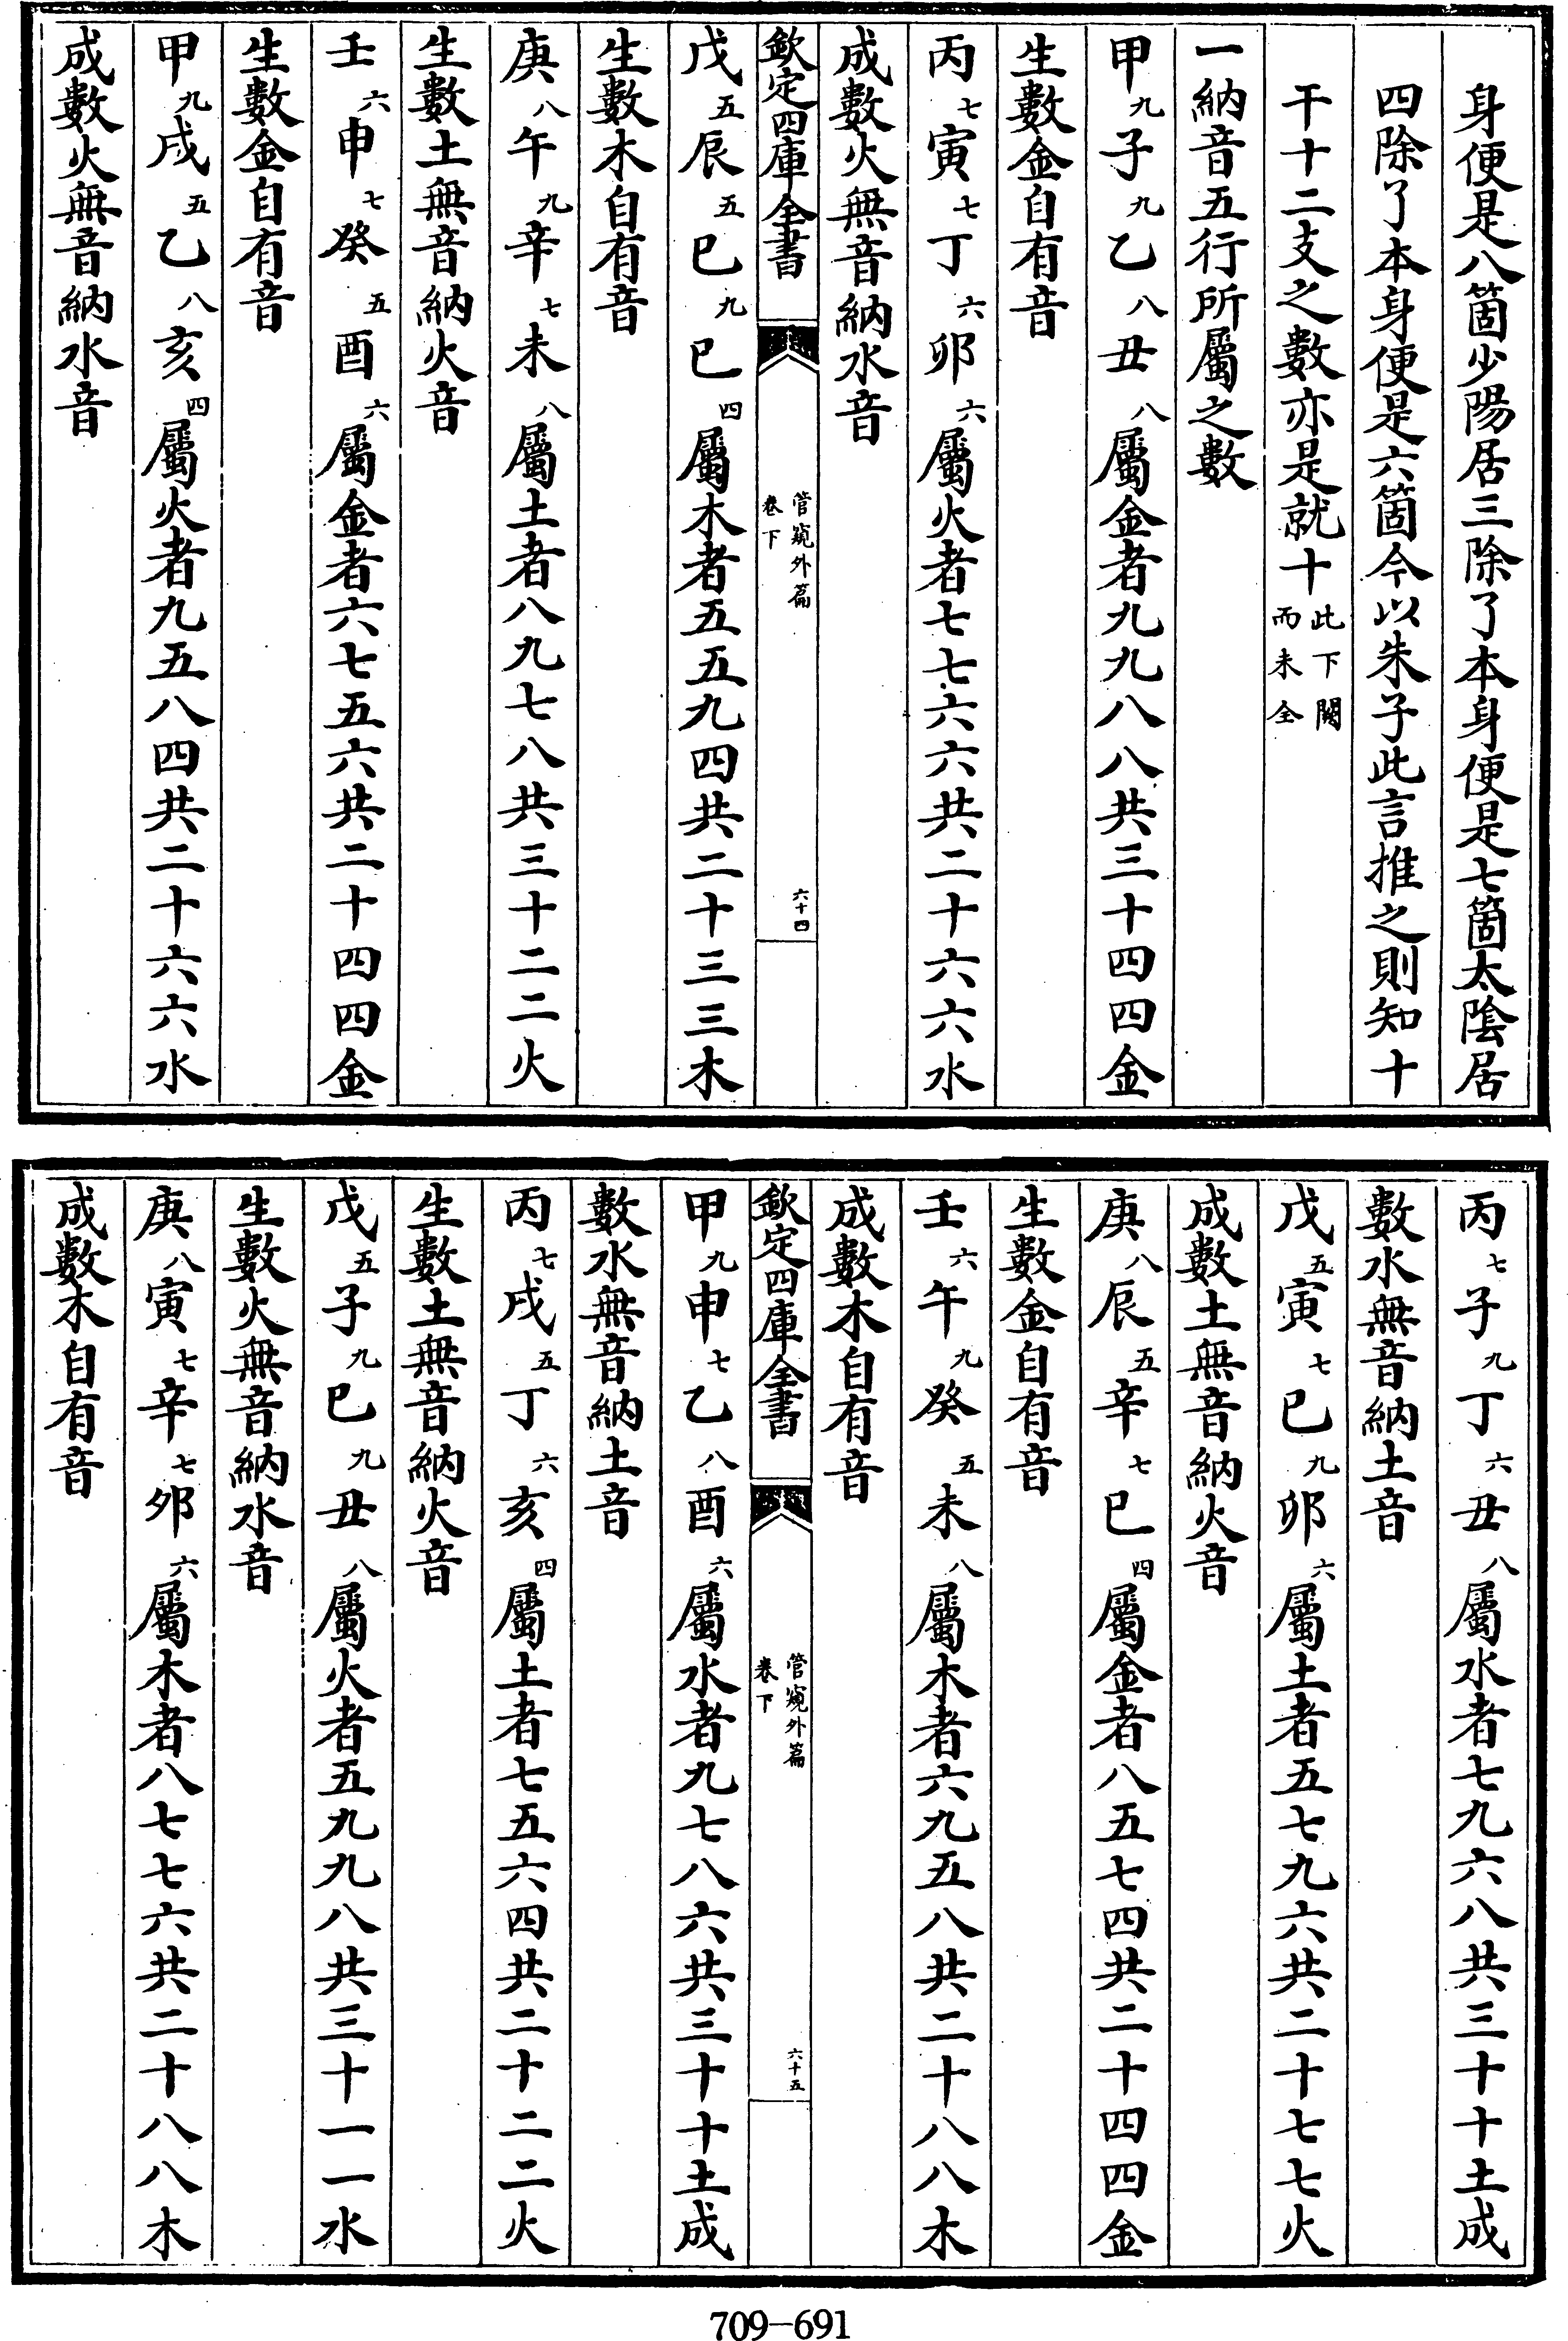 身便是八箇少陽居三除了本身便是七箇太陰居
四除了本身便是六箇今以朱子此言推之則知十
干十二支之數亦是就十此下闕而未全
一納音五行所屬之數
甲九子九乙八丑八屬金者九九八八共三十四四金
生數金自有音
丙七寅七丁六卯六屬火者七七六六共二十六六水
成數火無音納水音
欽定四庫全書
管窺外篇
卷下
六十四
戊五辰五巳九巳四屬木者五五九四共二十三三木
生數木自有音
庚八午九辛七未八屬土者八九七八共三十二二火
生數土無音納火音
壬六申七癸五酉六屬金者六七五六共二十四四金
生數金自有音
甲九戌五乙八亥四屬火者九五八四共二十六六水
成數火無音納水音
丙七子九丁六丑八屬水者七九六八共三十十土成
數水無音納土音
戊五寅七巳九卯六屬土者五七九六共二十七七火
成數土無音納火音
庚八辰五辛七巳四屬金者八五七四共二十四四金
生數金自有音
壬六午九癸五未八屬木者六九五八共二十八八木
成數木自有音
欽定四庫全書
管窺外篇
卷下
六十五
甲九申七乙八酉六屬水者九七八六共三十十土成
數水無音納土音
丙七戌五丁六亥四屬土者七五六四共二十二二火
生數土無音納火音
戊五子九巳九丑八屬火者五九九八共三十一一水
生數火無音納水音
庚八寅七辛七卯六屬木者八七七六共二十八八木
成數木自有音
709-691